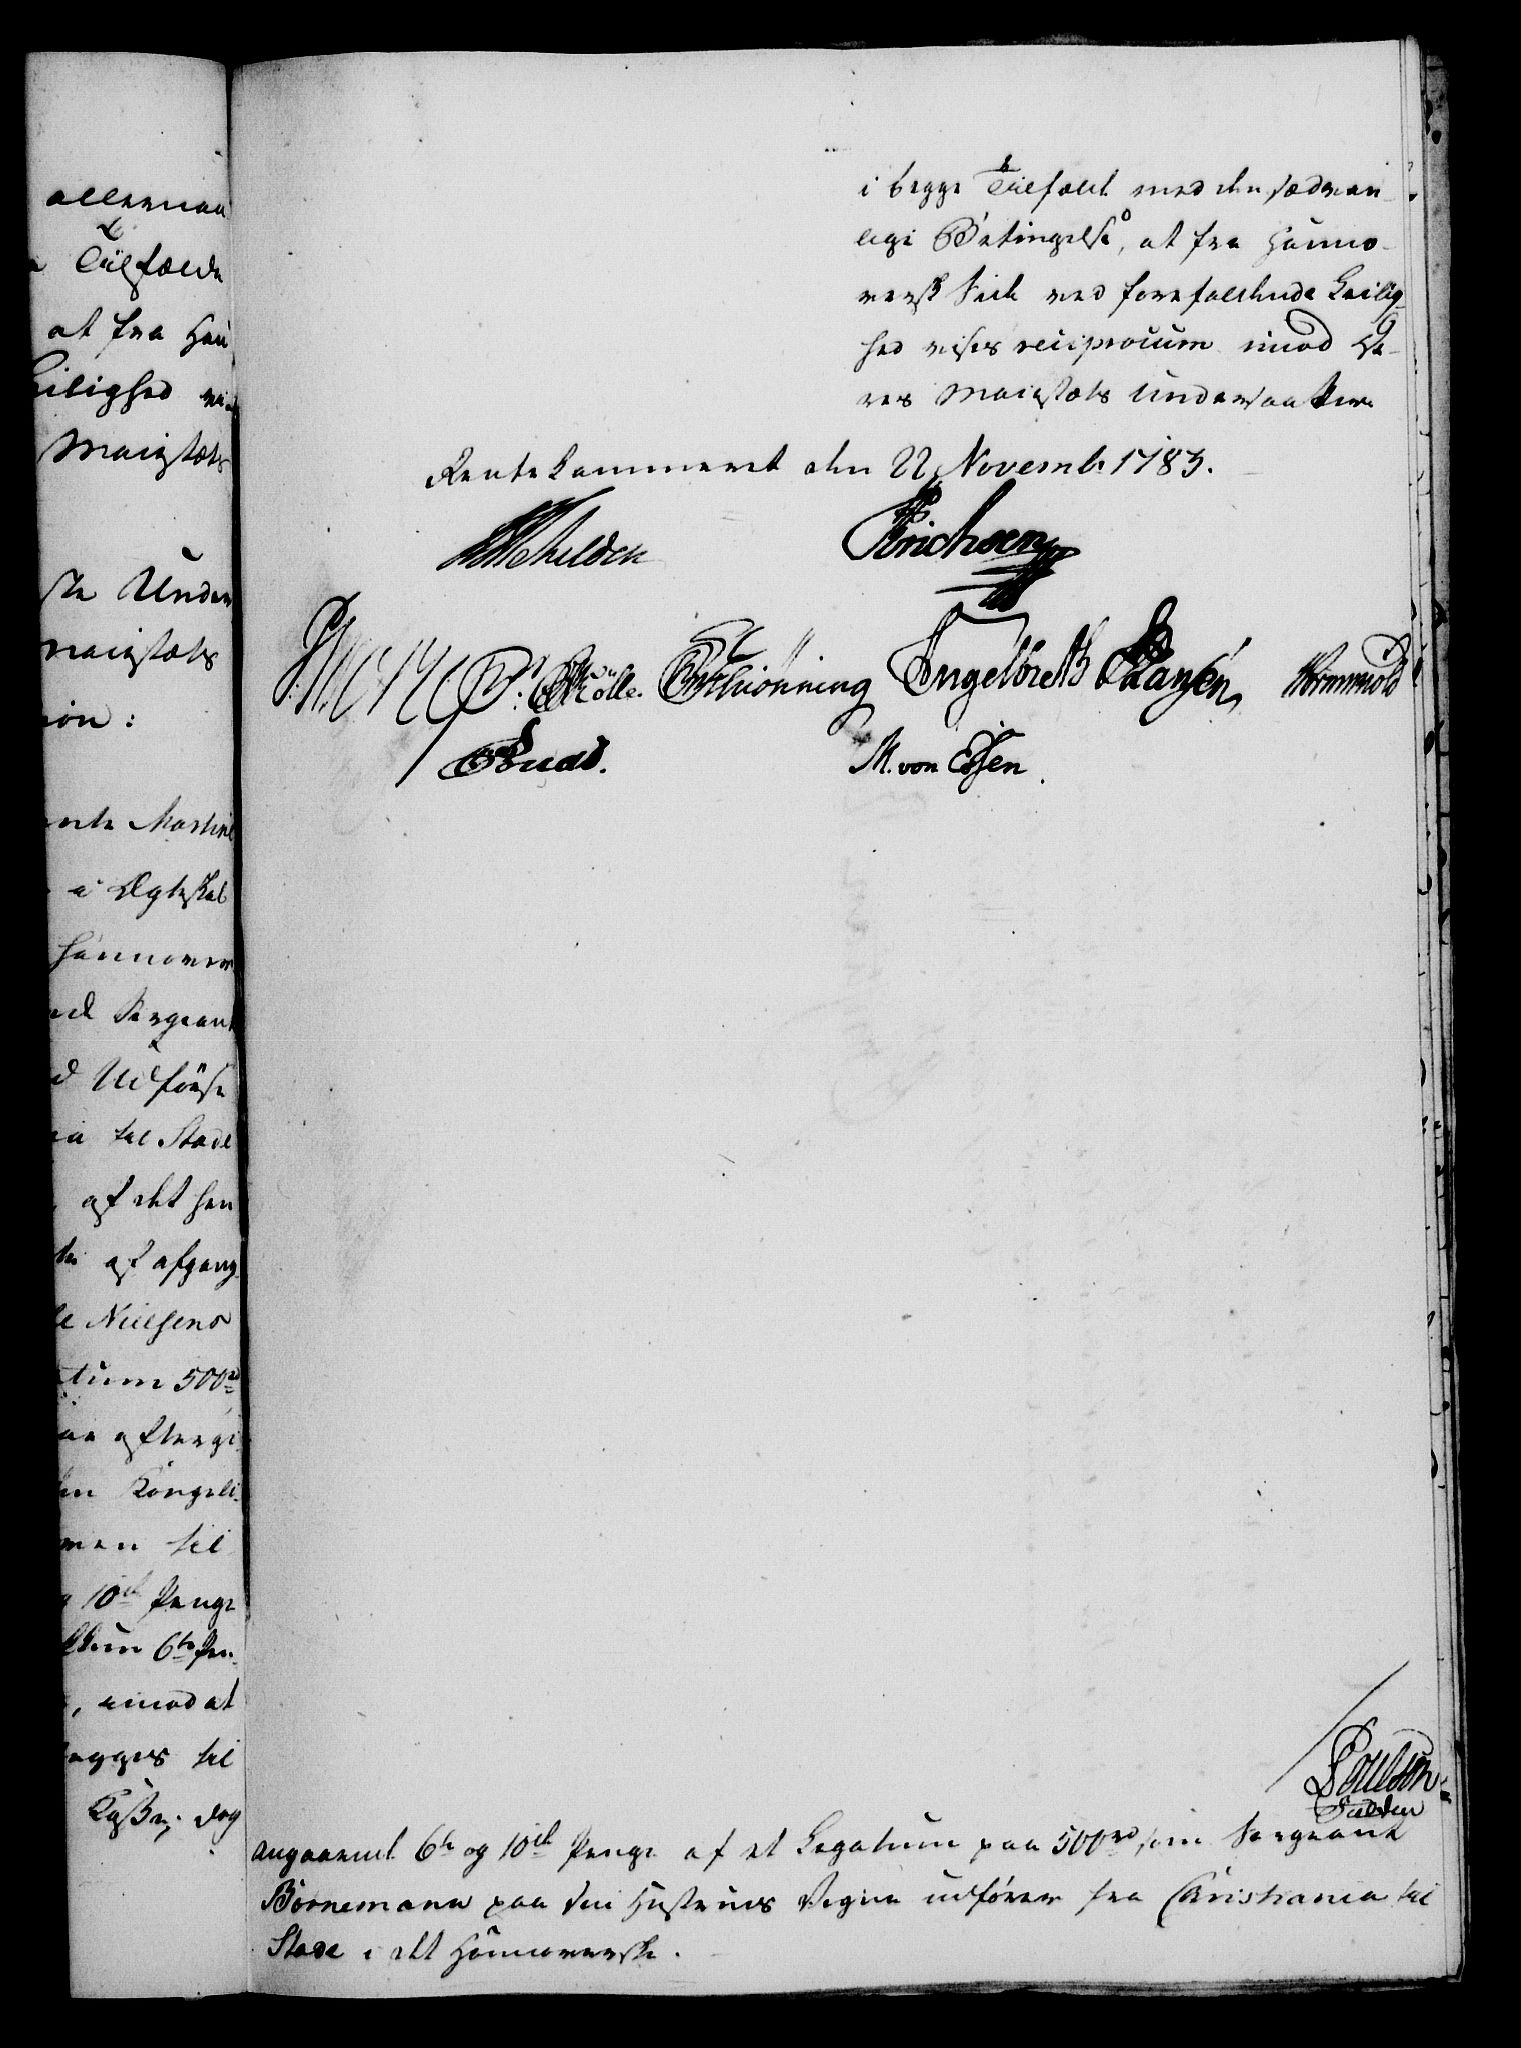 allernaa
Tilfælde
at fra Han
Leilighed
Maiestæts
Under
Maiestæts
ion:
Martini
i Ægteskab
Hannover
Sergeant
Udførse
til Stade
af det han
af afgang
Nielsens
tum 500 rd
eftergi
Kongeli
men til
10de Penge
6te Pen
, imod at
lægges til
Kasse; dog
i begge Tilfælde med den sædvan-
lige Betingelse, at fra Hanno-
versk Side ved forefaldende Leilig-
hed vises reciprocum imod De-
res Maiestæts Undersaattere
Rentekammeret den 22 Novembr 1783.
Schilden Erichsen
P. Möller. Schiönning Engelbreth Hansen Wormskiold
M. von Essen.
Poulsen
angaaende 6te og 10de Penge af et Legatum paa 500 rd, som Sergeant
Børnemann paa sin Hustrues Vegne udfører fra Christiania til
Stade i det Hannoverske.